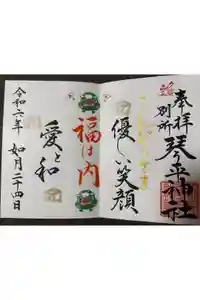 奉拝
別所
琴平神社
優しい笑顔
福は内
愛と和
令和六年 如月二十四日